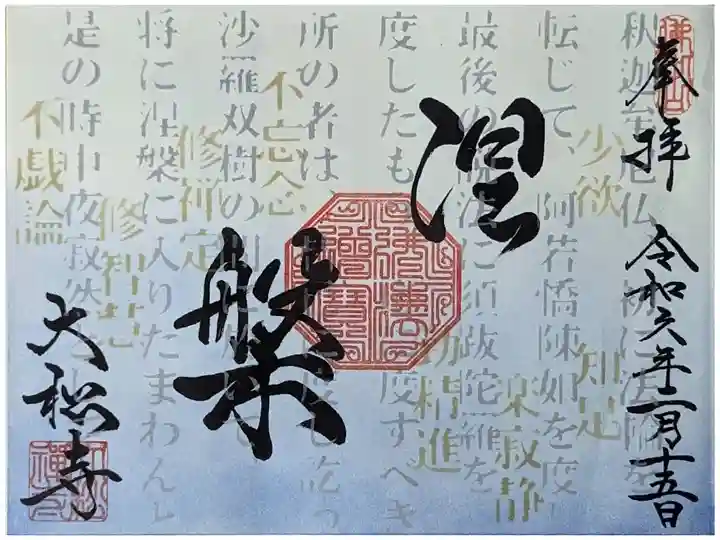 奉拝
令和六年二月十五日
涅槃
釈迦牟尼仏、初に法輪を
転じて、阿若憍陳如を度し
最後の説法に須跋陀羅を
度したも度すべき
所の者は に度し訖っ
沙羅双樹の間に於いて
将に涅槃に入りたまわんと
是の時中夜寂然とし
少欲
知足
楽寂静
勤精進
不忘念
修禅定
修智慧
不戯論